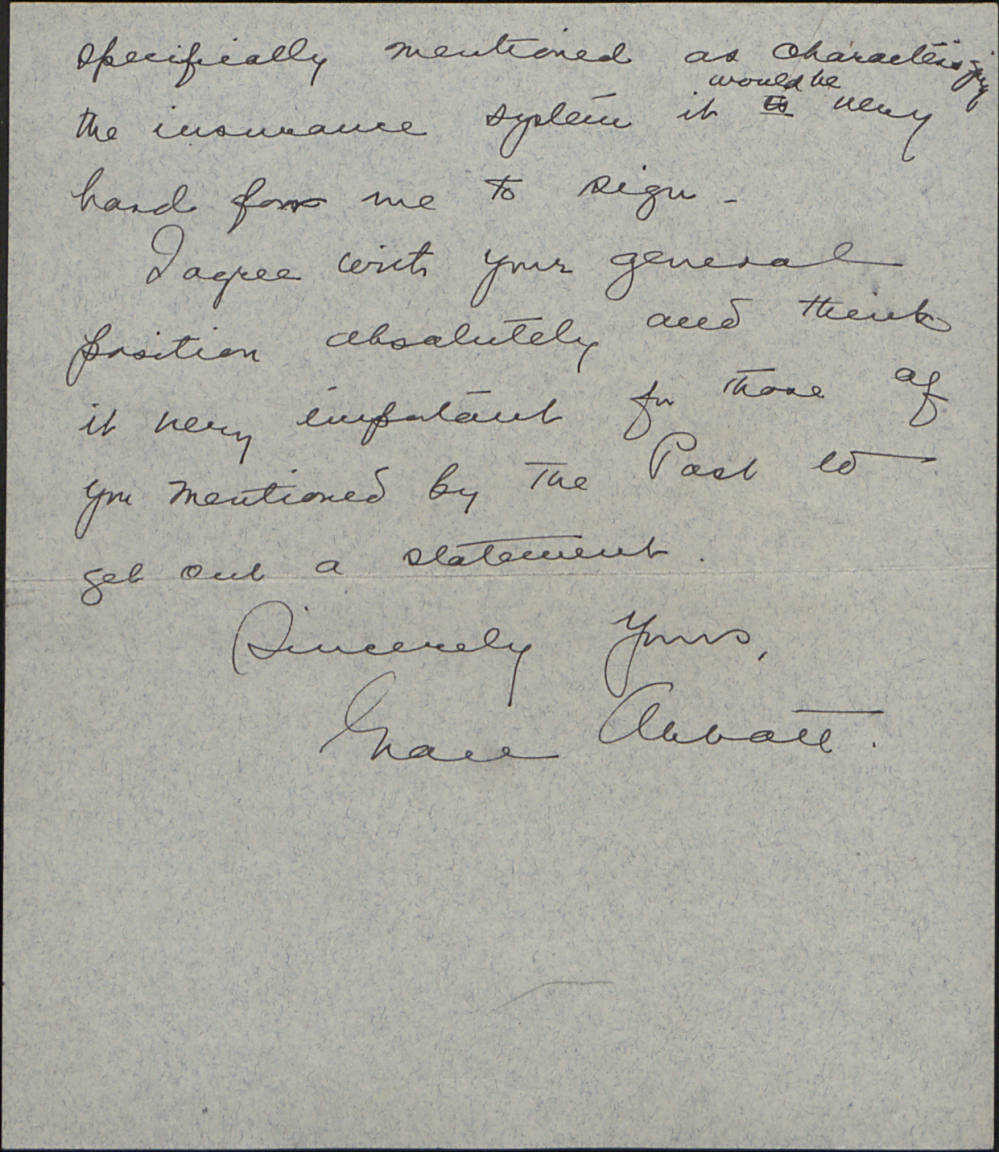 specifically mentioned as characterizing
would be
the insurance system it is very
hard for me to sign -
I agree with your general
position absolutely and think
it very important for those of
you mentioned by the Post to
get out a statement.
Sincerely Yours,
Grace Abbott.